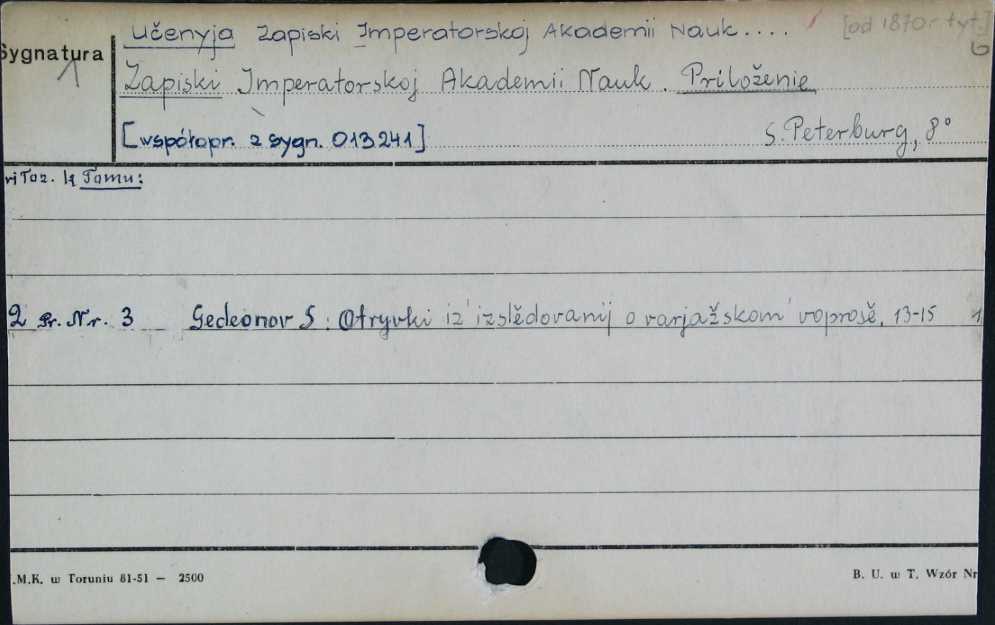 Učenyja Zapiski Imperatorskoj Akademii Nauk.... [od 1870 r. tyt.]
Sygnatura
Zapiski Imperatorskoj Akademii Nauk. Priloženie
[współopr. z sygn. 013241] S. Peterburg, 8°
Tomu:
2 Pr. Nr. 3 Gedeonov S: Otryvki iz' izslědovanij o varjažskom' voprosě. 13-15 1
.M.K. w Toruniu 81-51 — 2500 B. U. w T. Wzór Nr